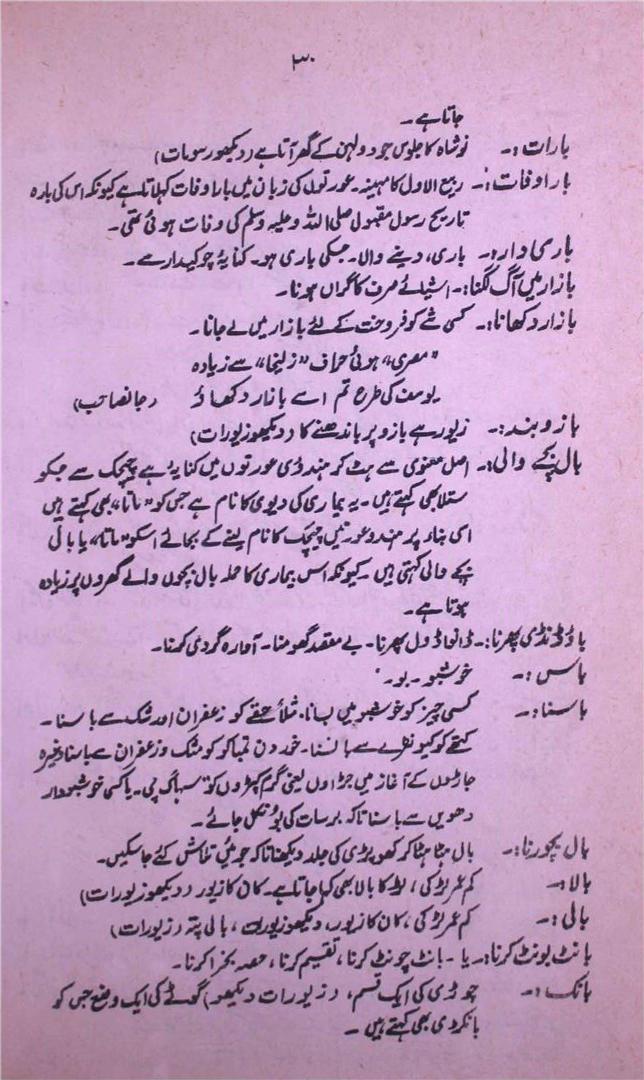 ۳۰
جاتا ہے۔
بارات :۔ نوشاہ کا جلوس جو دولہن کے گھر آتا ہے (دیکھو رسومات)
باراوفات :۔ ربیع الاول کا مہینہ۔ عورتوں کی زبان میں باراوفات کہلاتا ہے کیونکہ اس کی بارہ
تاریخ رسول مقبول صلی اللہ وعلیہ وسلم کی وفات ہوئی تھی۔
باری دار :۔ باری، دینے والا۔ جسکی باری ہو۔ کنایۃً چوکیدار سے۔
بازار میں آگ لگنا :۔ اشیائے صرف کا گراں ہونا۔
بازار دکھانا :۔ کسی شے کو فروخت کے لئے بازار میں لے جانا۔
"مصری" ہوئی حراف "زلیخا" سے زیادہ
یوسف کی طرح تم اسے بازار دکھاؤ (جانصاحب)
بازو بند :۔ زیور ہے بازو پر باندھنے کا (دیکھو زیورات)
بال بچے والی :۔ اصل معنوی سے ہٹ کر ہندوی عورتوں میں کنایہ ہے چیچک سے جسکو
ستلا بھی کہتے ہیں۔ یہ بیماری کی دیوی کا نام ہے جس کو "ماتا" بھی کہتے ہیں
اسی بناء پر ہندو عورتیں چیچک کا نام لینے کے بجائے اسکو "ماتا" یا بالی
بچے والی کہتی ہیں۔ کیونکہ اس بیماری کا حملہ بال بچوں والے گھروں پر زیادہ
ہوتا ہے۔
باؤ ڈنڈی پھرنا :۔ ڈانواڈول پھرنا۔ بے مقصد گھومنا۔ آوارہ گردی کرنا۔
باس :۔ خوشبو۔ بو۔
باسنا :۔ کسی چیز کو خوشبو میں بسانا، مثلاً حقے کو زعفران اور مشک سے باسنا۔
کتھے کو کیوڑے سے باسنا۔ خوردن تمباکو کو مشک و زعفران سے باسنا وغیرہ
جاڑوں کے آغاز میں جڑاول یعنی گرم کپڑوں کو سہاگ پی۔ یا کسی خوشبودار
دھویں سے باسنا تاکہ برسات کی بو نکل جائے۔
بال بچورنا :۔ بال ہٹا ہٹا کر کھوپڑی کی جلد دیکھنا تاکہ جوئیں تلاش کئے جاسکیں۔
بالا :۔ کم عمر لڑکی، لڑکا بالا بھی کہا جاتا ہے۔ کان کا زیور (دیکھو زیورات)
بالی :۔ کم عمر لڑکی، کان کا زیور، دیکھو زیورات، بالی پتہ (زیورات)
بانٹ بونٹ کرنا :۔ یا۔ بانٹ چونٹ کرنا، تقسیم کرنا، حصہ بخرا کرنا۔
بانک :۔ چوڑی کی ایک قسم، (زیورات دیکھو) گوٹے کی ایک وضع جس کو
بانکڑی بھی کہتے ہیں۔